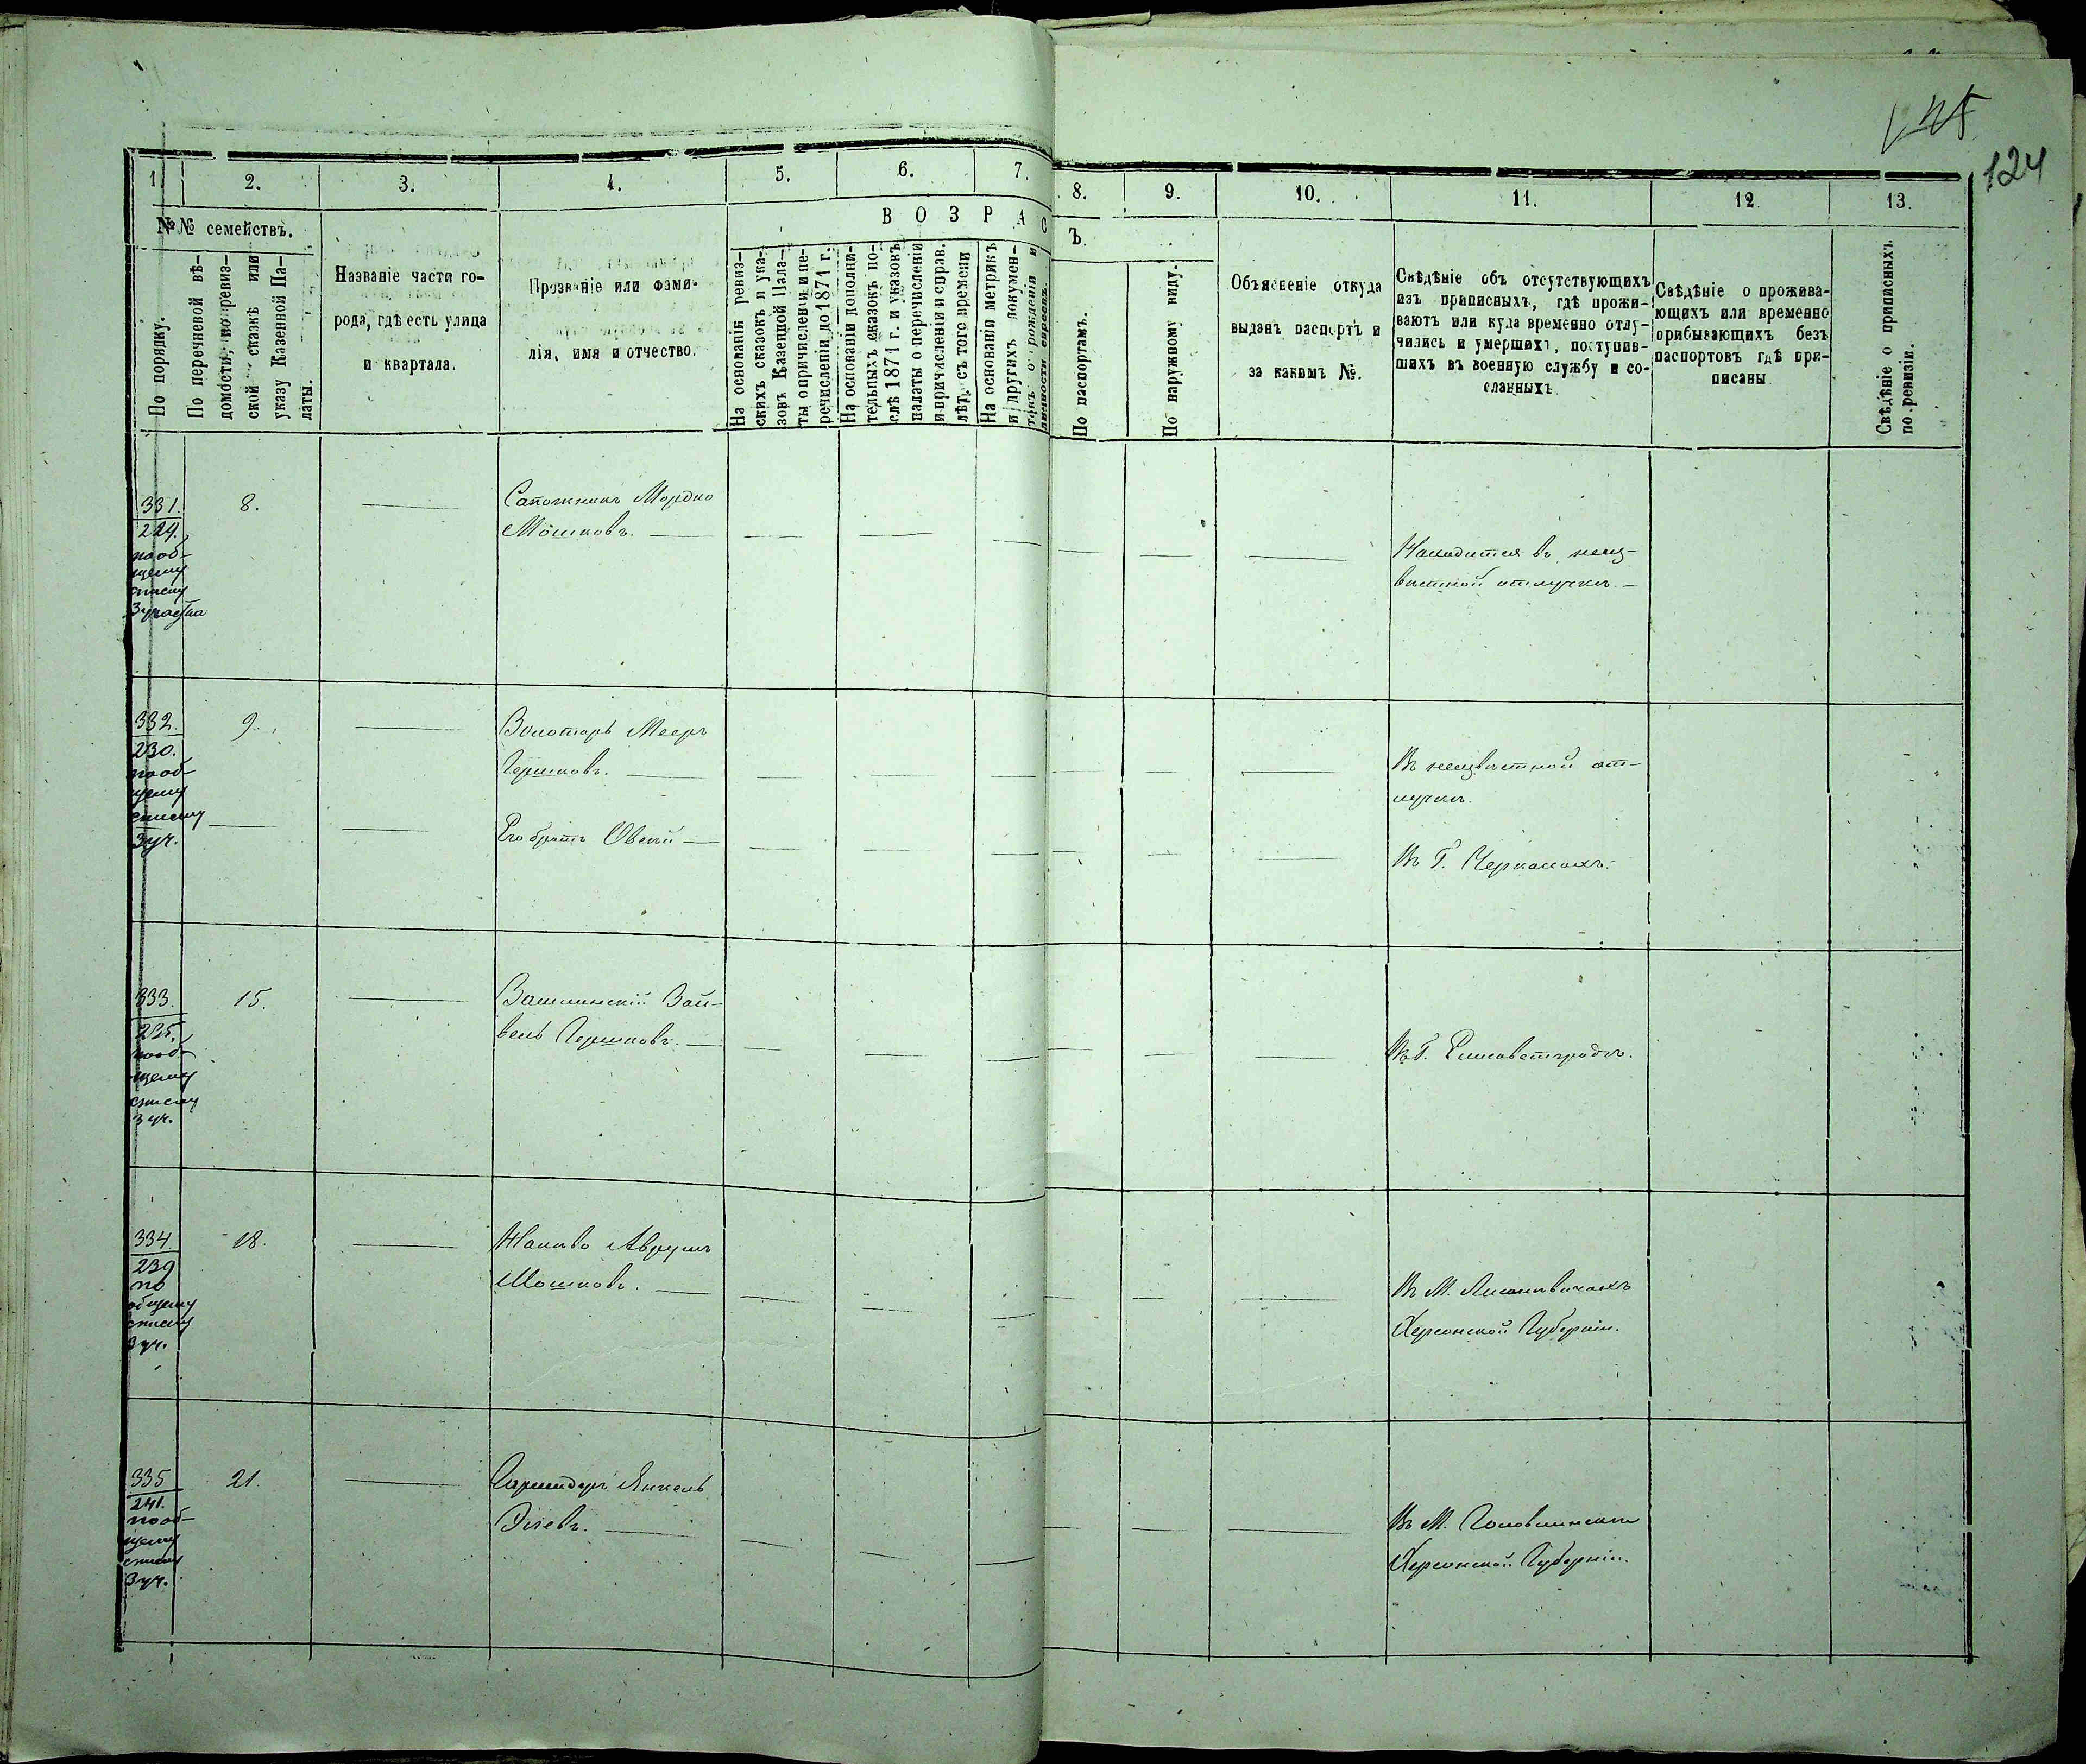 124
1.
2.
3.
4.
5.
6.
7.
8.
9.
10.
11.
12
13.
№№ семействъ.
По порядку.
По перечневой вѣ-
домости, по ревиз-
ской сказкѣ или
указу Казенной Па-
латы.
Названіе части го-
рода, гдѣ есть улица
и квартала.
Прозваніе или фами-
лія, имя и отчество.
ВОЗРАС
Ъ.
На основаніи ревиз-
скихъ сказокъ и ука-
зовъ Казенной Пала-
ты о причисленіи и пе-
речисленіи до 1871 г.
На основаніи дополни-
тельныхъ сказокъ по-
слѣ 1871 г. и указовъ
палаты о перечисленіи
и причисленіи и справ.
лѣт. съ того времени
На основаніи метрикъ
и другихъ докумен-
товъ о рожденіи и
личности евреевъ.
По паспортамъ.
По наружному виду.
Объясненіе откуда
выданъ паспортъ и
за какимъ №.
Свѣдѣніе объ отсутствующихъ
изъ приписныхъ, гдѣ прожи-
ваютъ или куда временно отлу-
чились и умершихъ, поступив-
шихъ въ военную службу и со-
сланныхъ
Свѣдѣніе о прожива-
ющихъ или временно
прибывающихъ безъ
паспортовъ гдѣ при-
писаны.
Свѣдѣніе о приписныхъ
по ревизіи.
331.
229.
по об-
щему
списку
3 участка
8.
Сапожникъ Мордко
Мошковъ.
Находится въ неиз-
вѣстной отлучкѣ.
332.
230.
по об-
щему
списку
3 уч.
9.
Золотарь Мееръ
Гершковъ.
Въ неизвѣстной от-
лучкѣ.
Его братъ Овсій
Въ Г. Черкасахъ.
333.
235.
по об-
щему
списку
3 уч.
15.
Зай-
вель Гершковъ.
Въ Г. Елисаветградѣ.
334
239
по
общему
списку
3 уч.
18.
Аврумъ
Мошковъ.
Въ М.
Херсонской Губерніи.
335
241.
по об-
щему
списку
3 уч.
21.
Янкель
Въ М.
Херсонской Губерніи.